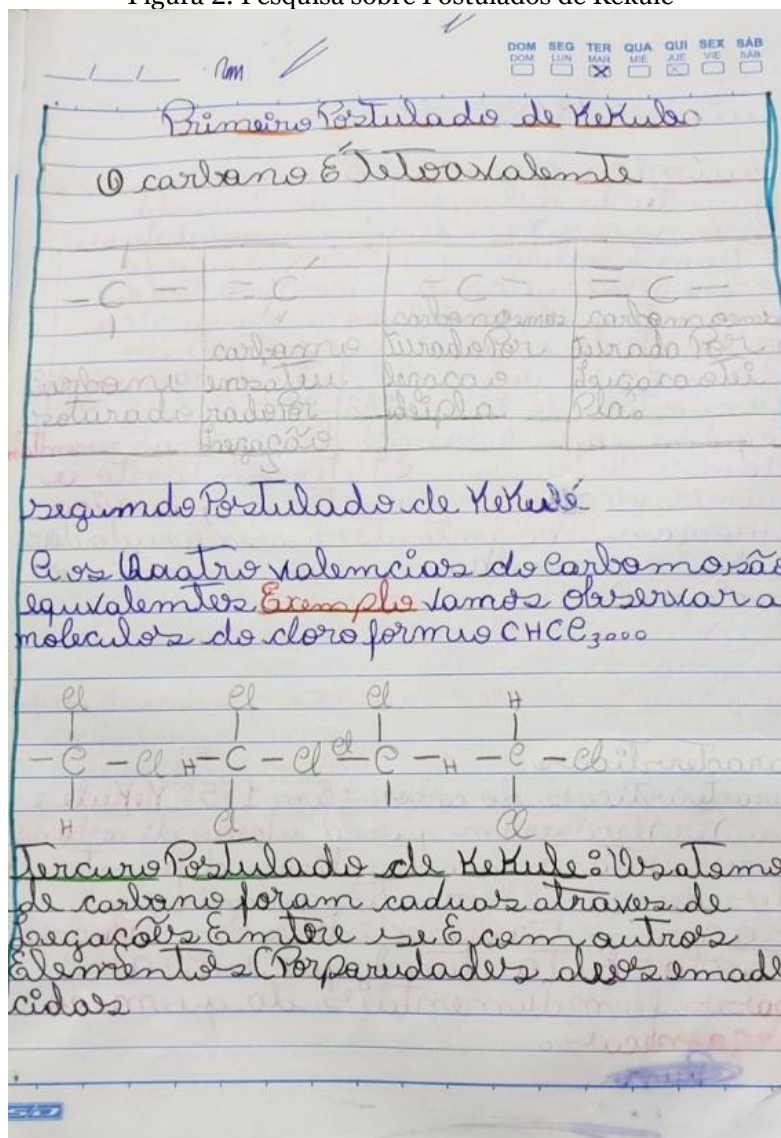 Figura 2: Pesquisa sobre Postulados de Kekulé
DOM SEG TER QUA QUI SEX SÁB
DOM LUN MAR MIÉ JUE VIE SÁB
Primeiro Postulado de Kekule
O carbono É Tetoavalemte
- C - = C = C = = C -
carbono
soturado
carbomo
ensatu
radopor
Legação
turadopor
legacao
deipla
turado Por
Plao
segumdo Postulado de Kekulé
as Quatro valemcias do Carbomo são
equvalemtes Exemplo vamos observar a
moleculos do cloro formuo CHCl3ooo
Cl Cl Cl H
- C - Cl H - C - Cl Cl - C - H - C - Cl
H Cl Cl
Tercuro Postulado de Kekule: Us atomo
de carbono foram caduas atraves de
Legações Emtre se E com outros
Elementos (Porparudades
cidas